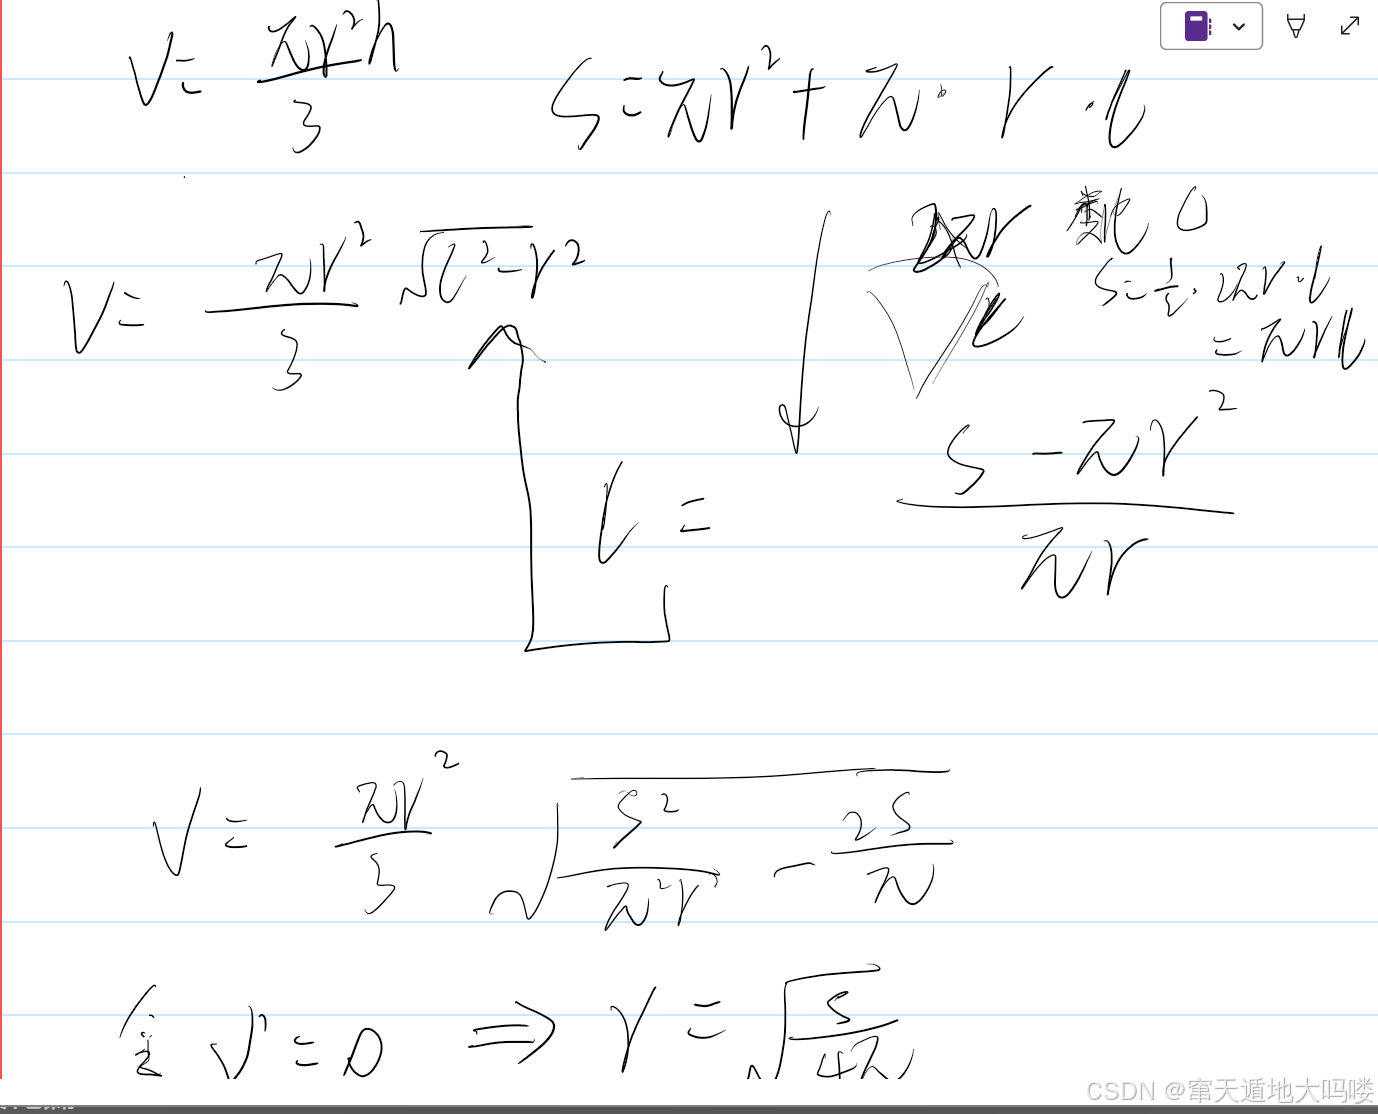 V = πr²h / 3
S = πr² + π · r · l
V = πr² / 3 √(l² - r²)
2πr 类比 △
l
S = 1/2 · 2πr · l
= πrl
l = (S - πr²) / πr
V = πr² / 3 √(S² / π²r² - 2S / π)
令 V' = 0 ⇒ r = √(S / 4π)
CSDN @窜天遁地大吗喽